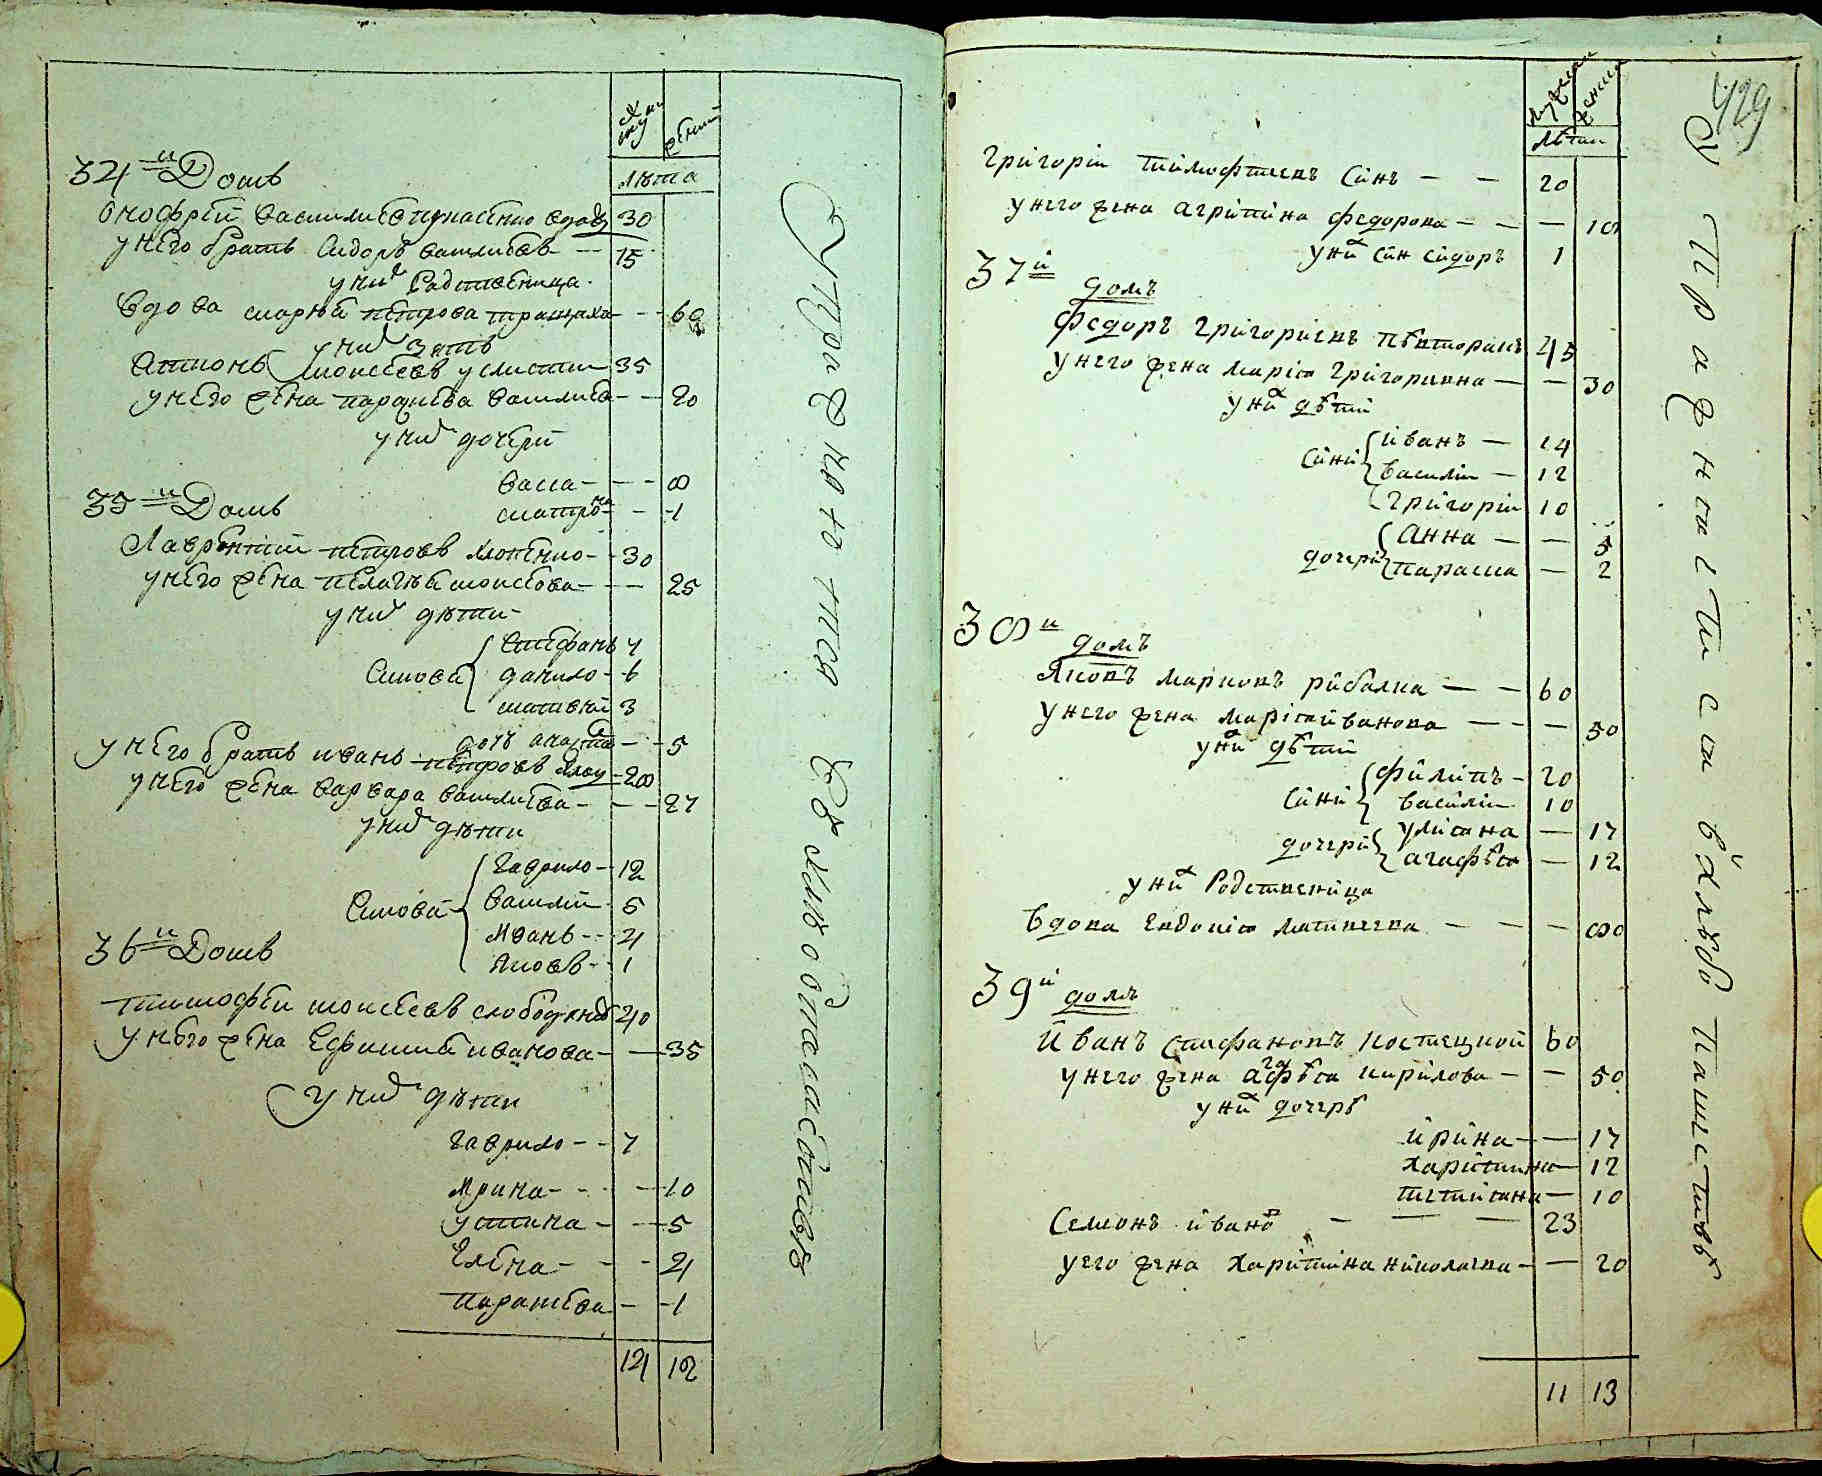 мужи
жений
лѣта
34й Домъ
Онофрей Василиевъ 30
у него братъ Сидоръ Василиевъ — 15
у них Родственица
Вдова Мария Петрова — — 60
у них зять
Антонъ Моисеевъ 35
у него жена Параскева Василиева — — 20
у них дочери
Васса — — — 8
Матрона — — 1
35й Домъ
Лаврентий Петровъ — 30
у него жена Пелагея Моисеова — — 25
у них дѣти
Синови Стефанъ 7
данило — 6
матвей 3
дочь — — 5
у него братъ иванъ Петровъ — 28
у него жена варвара Василиева — — — 27
у них дѣти
Синови Гаврило — 12
Василий 5
Иванъ — 4
Яковъ — 1
36й Домъ
Тимофей моисеевъ 40
у него жена Ефимия иванова — — 35
у них дѣти
гаврило — — 7
Ирина — — — 10
устина — — 5
Елена — — — 4
Параскева — — 1
14 12
Упражнаются въ хлѣбопашествѣ
429
мужеска
женска
лѣта
Григорий Тимофеевъ Синъ — — 20
у него жена агрипина федорова — — — 18
у них Син сидоръ 1
37й
домъ
федоръ григориевъ 45
у него жена мария григориевна — — 30
у них дѣтий
сини иванъ — 14
василий — 12
григорий 10
дочери Анна — — 5
параска — 2
38й
домъ
Яковъ марковъ рибалка — — 60
у него жена мария иванова — — — 50
у них дѣтий
сини филипъ — 20
василий 10
дочери улияна — 17
агафия — 12
у них Родственица
вдова Евдокия матвеевна — — — 80
39й
домъ
иванъ стефановъ 60
у него жена агафия кирилова — — 50
у них дочерѣ
ирина — — 17
харитина — 12
тетияна — 10
Семионъ ивановъ — — — 23
у его жена харитина николаевна — — 20
11 13
Упражнаются в хлѣбопашествѣ